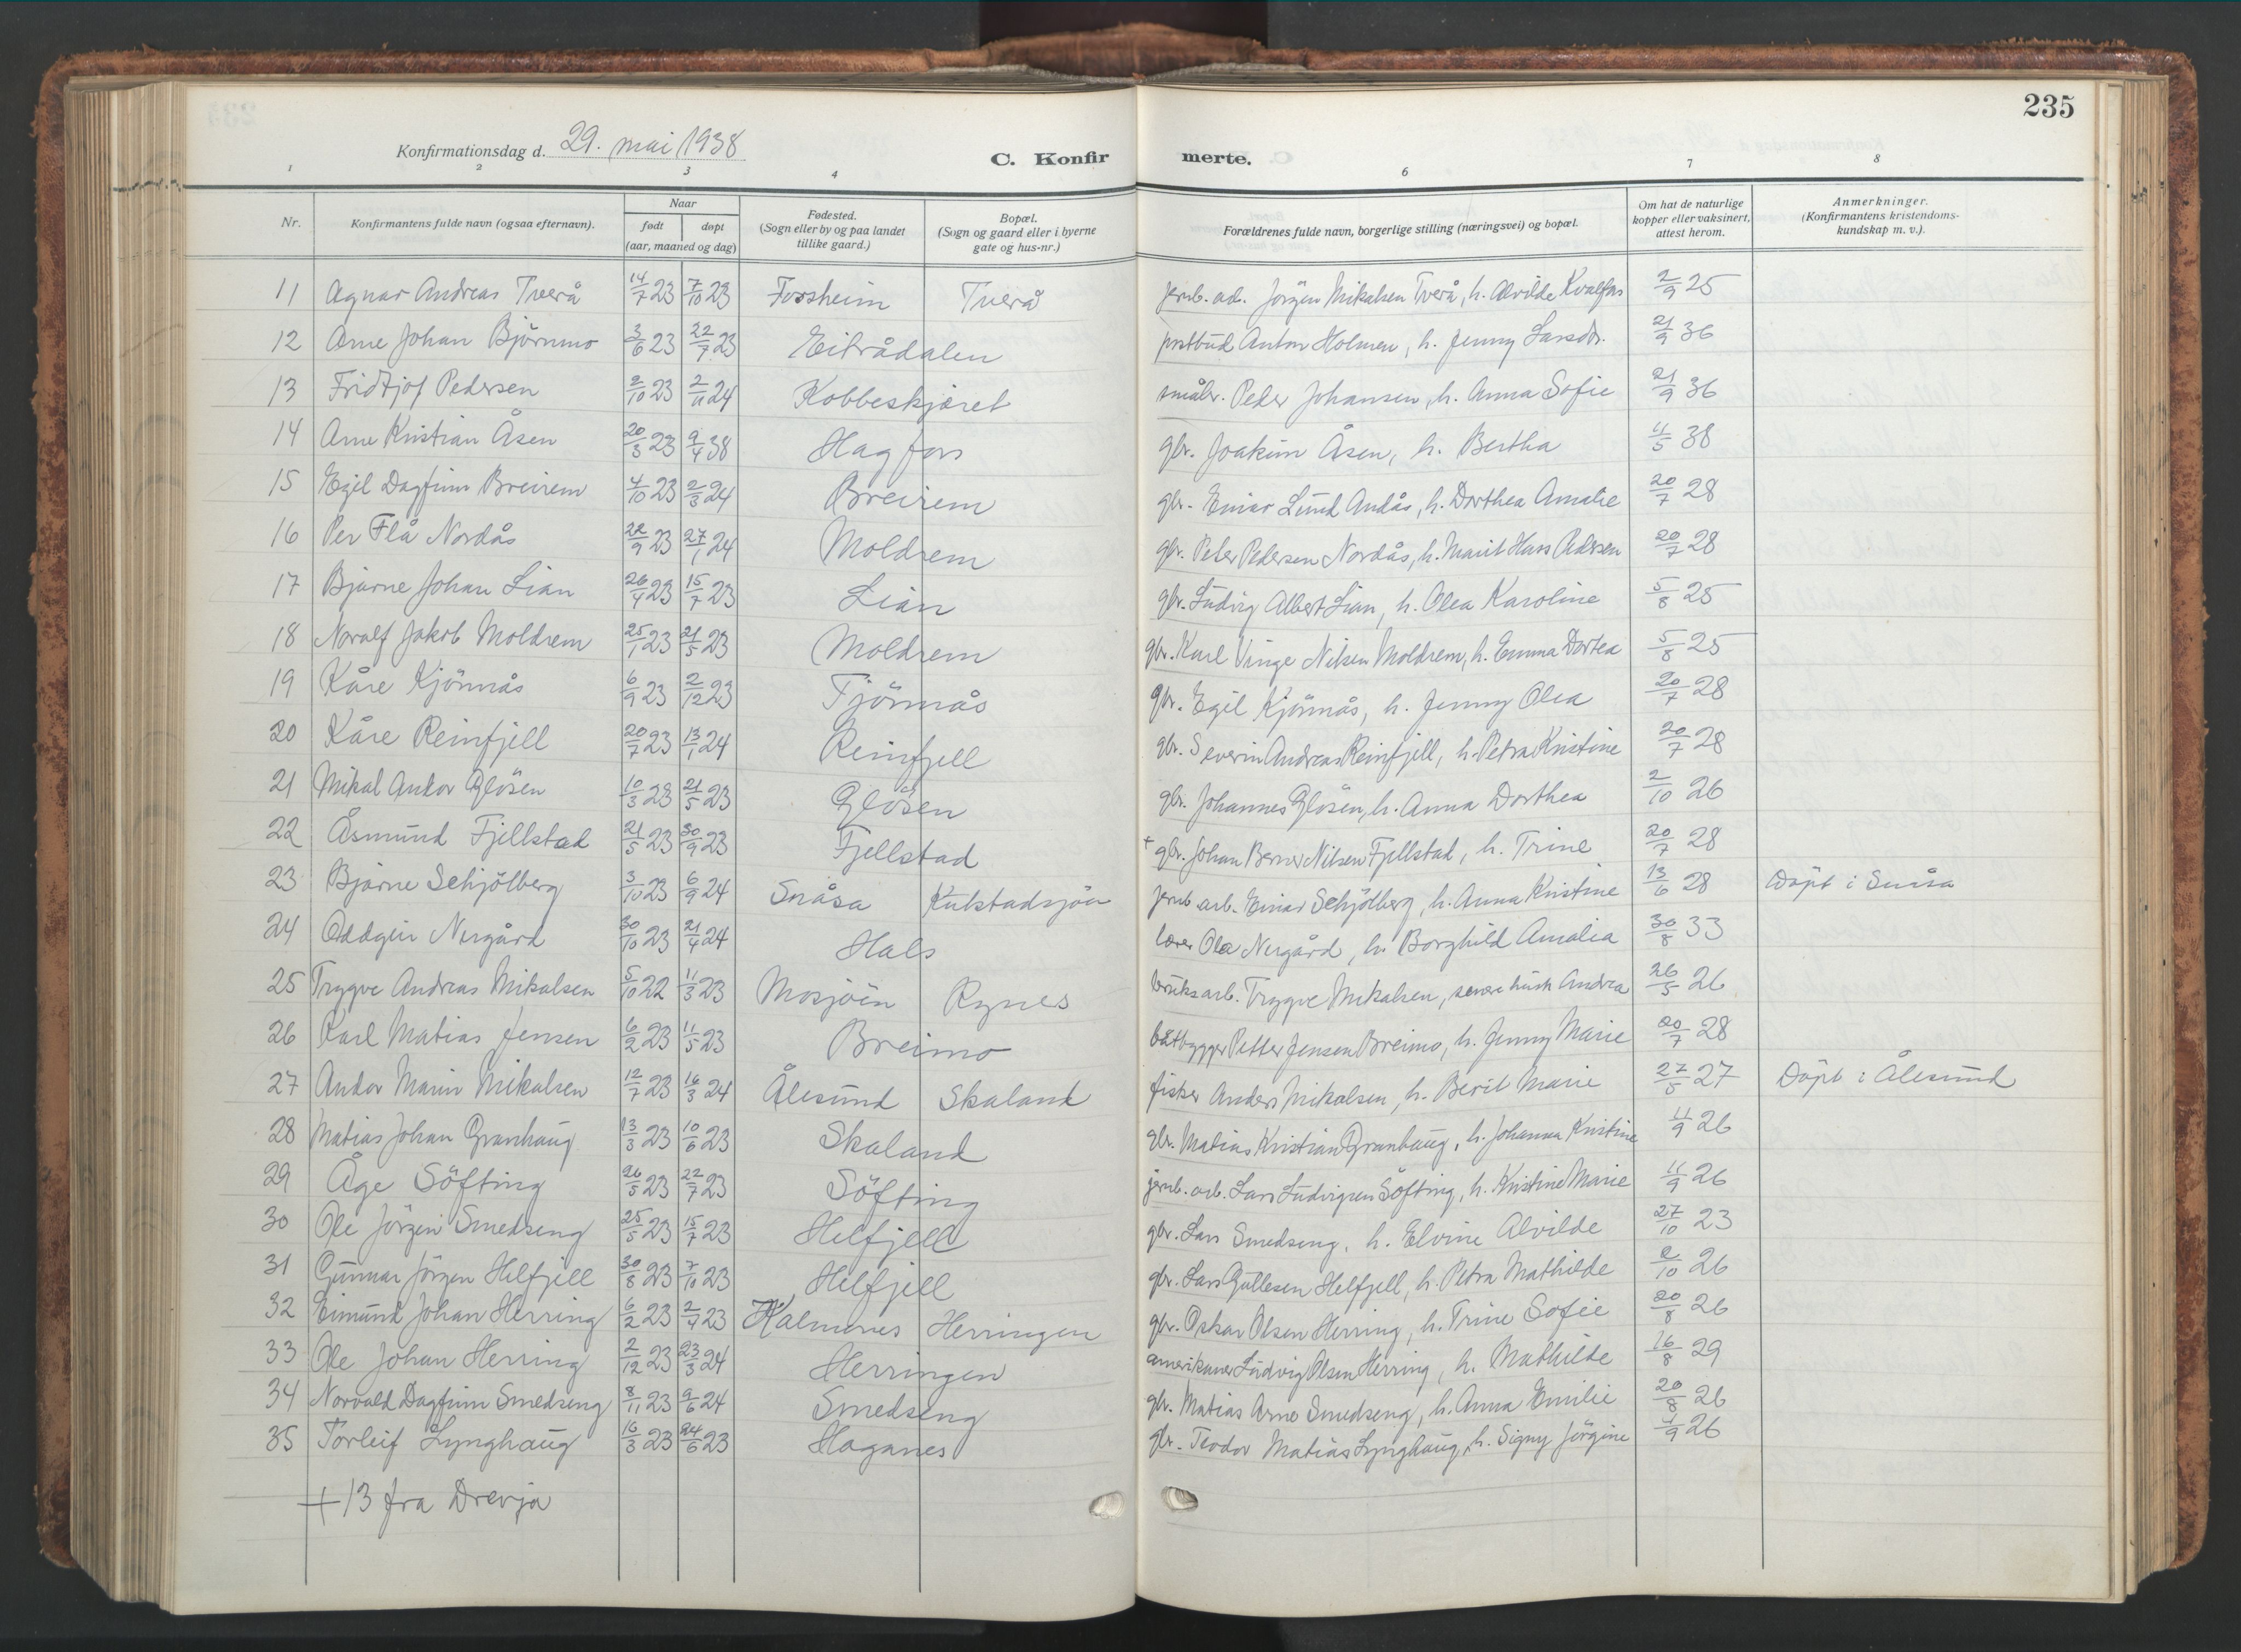 235
Konfirmationsdag d. 29. mai 1938
C. Konfirmerte.
1 2 3 4 6 7 8
Nr. Konfirmantens fulde navn (ogsaa efternavn). Naar født døpt (aar, maaned og dag) Fødested. (Sogn eller by og paa landet tillike gaard.) Bopæl. (Sogn og gaard eller i byerne gate og hus-nr.) Forældrenes fulde navn, borgerlige stilling (næringsvei) og bopæl. Om hat de naturlige kopper eller vaksinert, attest herom. Anmerkninger. (Konfirmantens kristendomskundskap m. v.).
11 Agnar Andreas Tverå 14/7 23 7/10 23 Forsheim Tverå jernb. arb. Jörgen Mikalsen Tverå, h. Alvilde Kvalfors 2/9 25
12 Arne Johan Björnmo 3/6 23 22/7 23 Eiterådalen postbud Anton Holmen, h. Jenny Larsdr. 21/9 36
13 Fridtjof Pedersen 2/10 23 2/11 24 Kobbeskjæret småbr. Peder Johansen, h. Anna Sofie 21/9 36
14 Arne Kristian Åsen 20/3 23 9/4 38 Hagfors gbr. Joakim Åsen, h. Bertha 11/5 38
15 Egil Dagfinn Breirem 4/10 23 2/3 24 Breirem gbr. Einar Lund Andås, h. Dorthea Amalie 20/7 28
16 Per Flå Nordås 22/9 23 27/1 24 Moldrem gbr. Peter Pedersen Nordås, h. Marit Hans Pedersen 20/7 28
17 Bjarne Johan Lian 26/4 23 15/7 23 Lian gbr. Ludvig Albert Lian, h. Olea Karoline 5/8 25
18 Noralf Jakob Moldrem 25/1 23 21/5 23 Moldrem gbr. Karl Vinge Nilsen Moldrem, h. Emma Dortea 5/8 25
19 Kåre Kjönnås 6/9 23 2/12 23 Tjönnås gbr. Egil Kjönnås, h. Jenny Olea 20/7 28
20 Kåre Reinfjell 20/7 23 13/1 24 Reinfjell gbr. Severin Andreas Reinfjell, h. Petra Kristine 20/7 28
21 Mikal Ankor Glösen 10/3 23 21/5 23 Glösen gbr. Johannes Glösen, h. Anna Dorthea 2/10 26
22 Åsmund Fjellstad 21/5 23 30/9 23 Fjellstad + gbr. Johan Berner Nilsen Fjellstad, h. Trine 20/7 28
23 Bjarne Schjölberg 3/10 23 6/9 24 Snåsa Kulstadsjöen jernb. arb. Einar Schjölberg, h. Anna Kristine 13/6 28 Döpt i Snåsa
24 Oddgeir Nergård 30/10 23 21/4 24 Hals lærer Ola Nergård, h. Borghild Amalia 30/8 33
25 Trygve Andreas Mikalsen 5/10 22 11/3 23 Mosjöen Rynes bruksarb. Trygve Mikalsen, senere hustr Andrea 26/5 26
26 Karl Matias Jensen 6/2 23 11/5 23 Breimo båtbygger Petter Jensen Breimo, h. Jenny Marie 20/7 28
27 Andor Marin Mikalsen 12/7 23 16/3 24 Ålesund Skaland fisker Anders Mikalsen, h. Berit Marie 27/5 27 Döpt i Ålesund
28 Matias Johan Granhaug 13/3 23 10/6 23 Skaland gbr. Matias Kristian Granhaug, h. Johanna Kristine 11/9 26
29 Åge Söfting 26/5 23 22/7 23 Söfting jernb. arb. Lars Ludvigsen Söfting, h. Kristine Marie 11/9 26
30 Ole Jörgen Smedseng 25/5 23 15/7 23 Helfjell gbr. Lars Smedseng, h. Elvine Alvilde 27/10 23
31 Gunnar Jörgen Helfjell 30/8 23 7/10 23 Helfjell gbr. Lars Gullesen Helfjell, h. Petra Mathilde 2/10 26
32 Eimund Johan Herring 6/2 23 2/4 23 Kalmenes Herringen gbr. Oskar Olsen Herring, h. Trine Sofie 20/8 26
33 Ole Johan Herring 2/12 23 23/3 24 Herringen amerikaner Ludvig Olsen Herring, h. Mathilde 16/8 29
34 Norvald Dagfinn Smedseng 8/11 23 9/6 24 Smedseng gbr. Matias Arne Smedseng, h. Anna Emilie 20/8 26
35 Torleif Lynghaug 16/3 23 24/6 23 Haganes gbr. Teodor Matias Lynghaug, h. Signy Jörgine 4/9 26
+ 13 fra Drevja